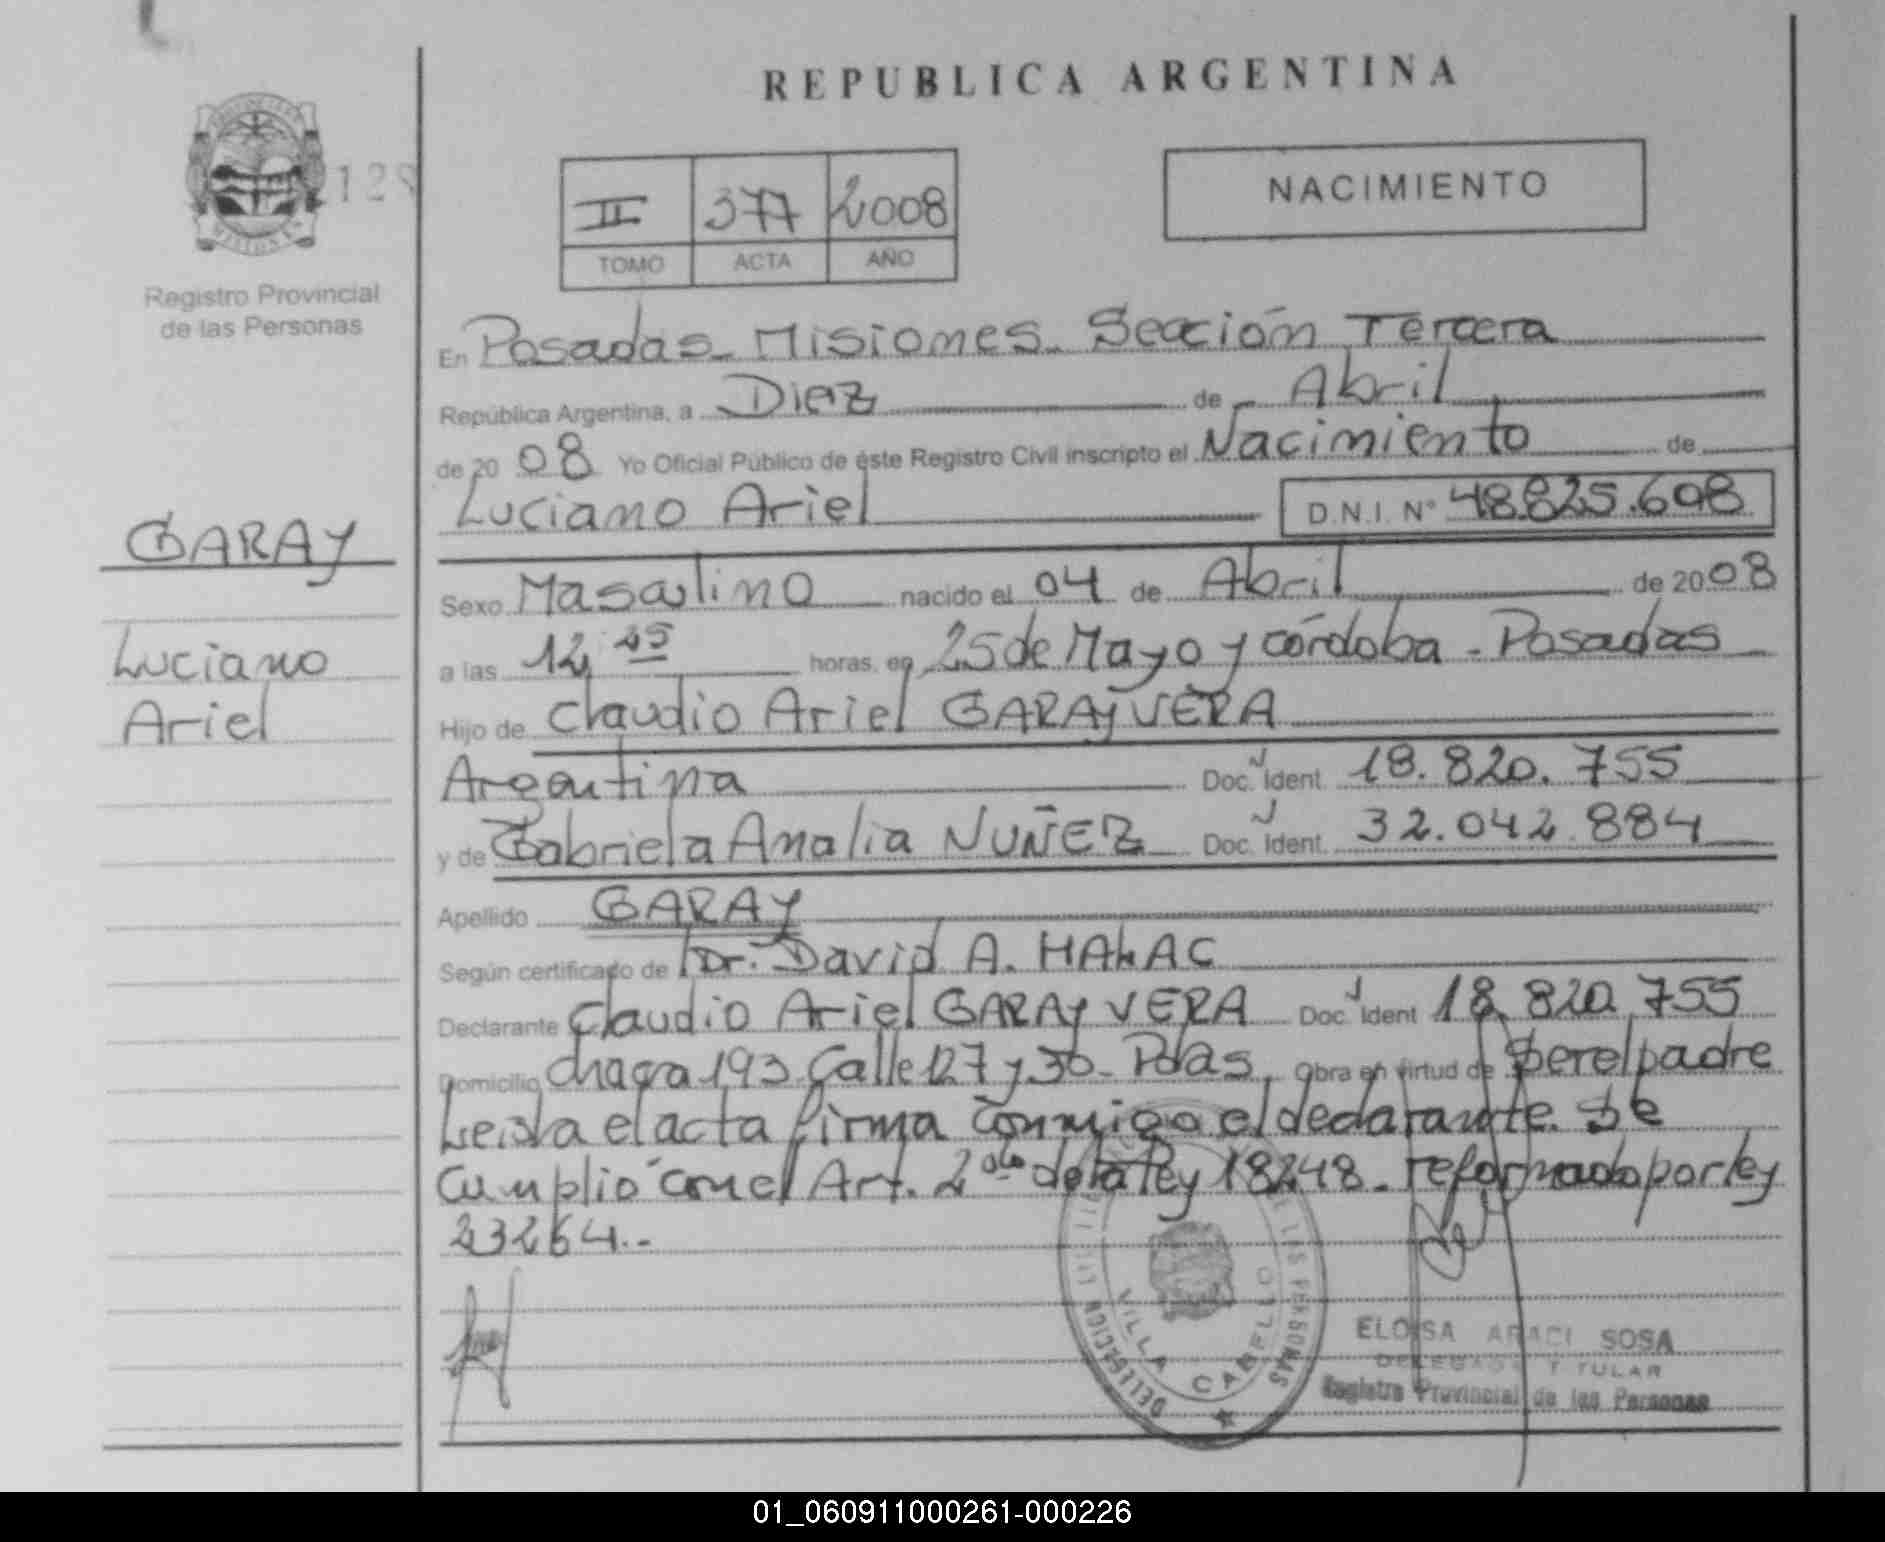 REPUBLICA ARGENTINA
II 377 2008
TOMO ACTA AÑO
NACIMIENTO
MISIONES
Registro Provincial
de las Personas
En Posadas - Misiones - Sección Tercera
República Argentina, a Diez de Abril
de 2008 Yo Oficial Público de éste Registro Civil inscripto el Nacimiento de
Luciano Ariel D.N.I. Nº 48.825.698
GARAY
Luciano
Ariel
Sexo Masculino nacido el 04 de Abril de 2008
a las 12,25 horas, en 25 de Mayo y córdoba - Posadas
Hijo de Claudio Ariel GARAY VERA
Argentina Doc. Ident. 18.820.755
y de Gabriela Analia NUÑEZ Doc. Ident. 32.042.884
Apellido GARAY
Según certificado de Dr. David A. HALAC
Declarante Claudio Ariel GARAY VERA Doc. Ident 18.820.755
Domicilio chacra 193 Calle 127 y 30 - Pdas, Obra en virtud de Ser el padre
Leida el acta firma conmigo el declarante. Se
cumplió con el Art. 2do de la ley 18248 - reformado por ley
23264.-
VILLA CABELLO
LAS PERSONAS
ELOISA ARACI SOSA
DELEGADA TITULAR
Registro Provincial de las Personas
01_060911000261-000226